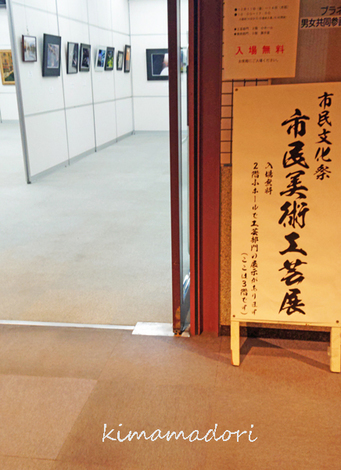 入場無料
プラネ
男女共同参画
市民文化祭
市民美術工芸展
入場無料
2階小ホールで工芸部門の展示があります
(ここは3階です)
kimamadori